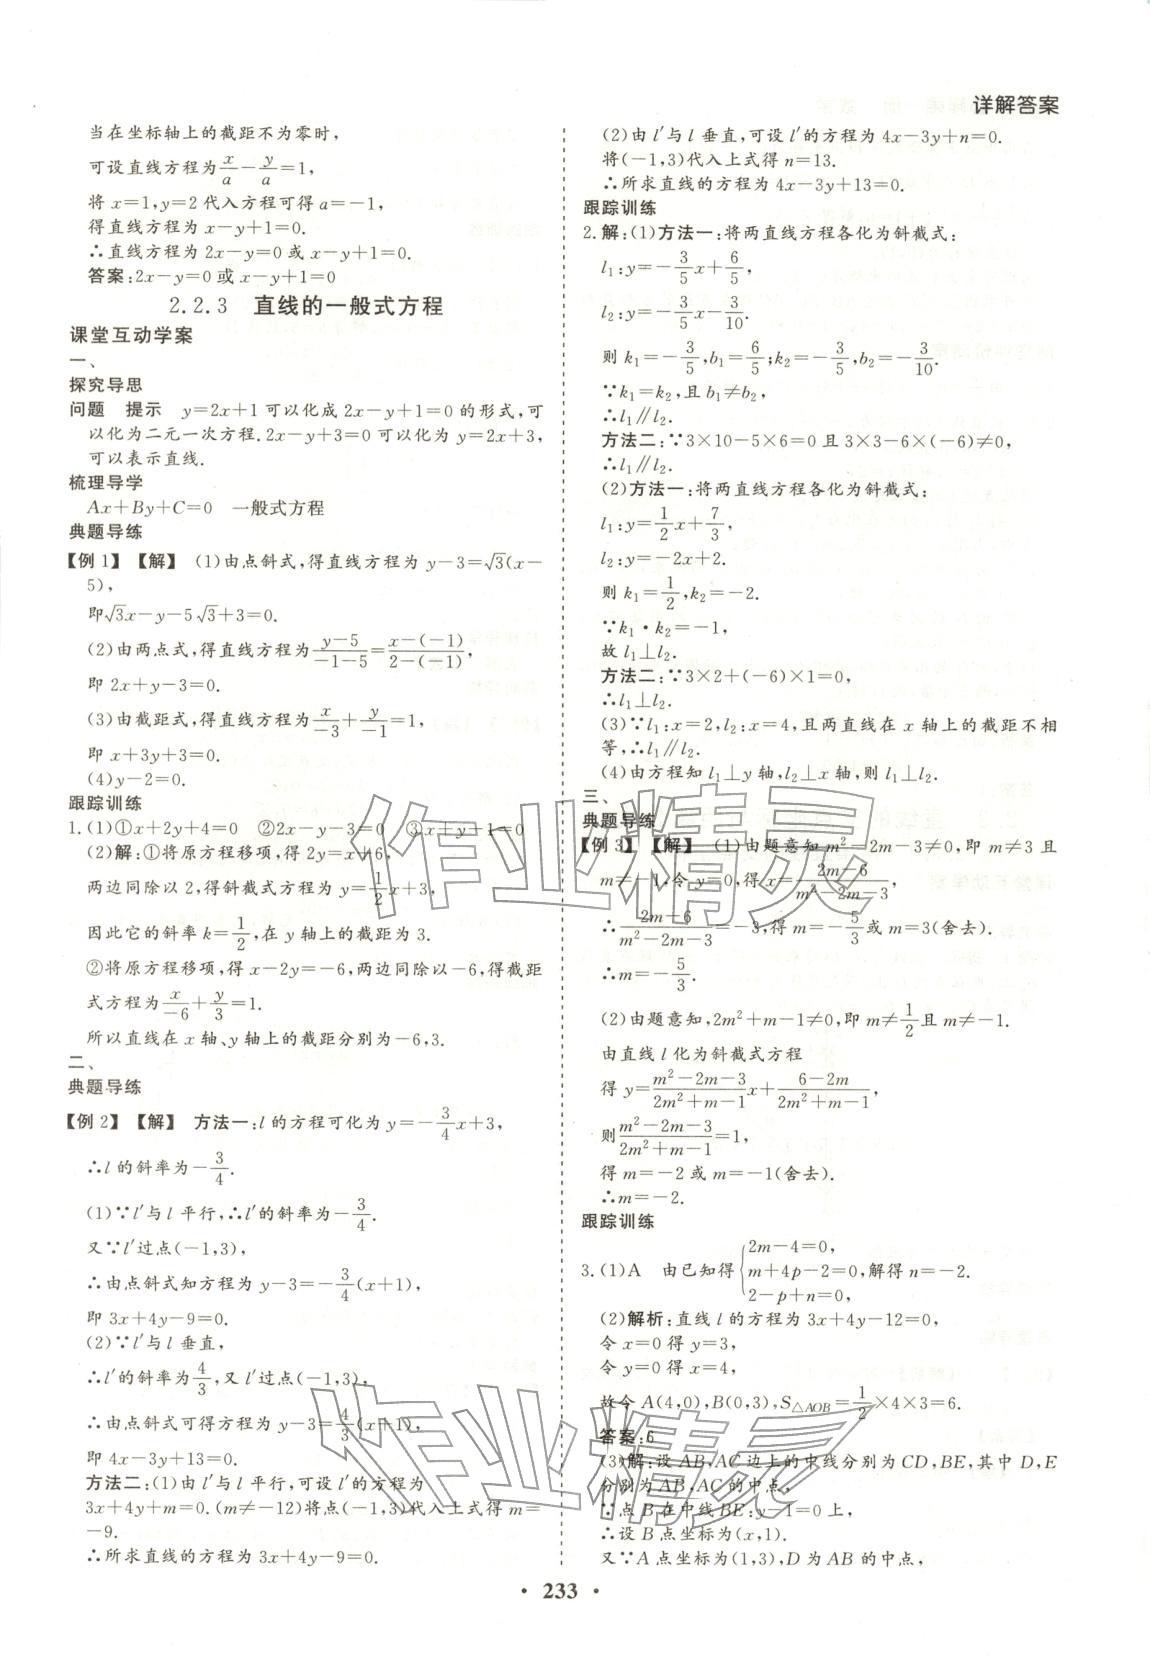 详解答案
当在坐标轴上的截距不为零时,
可设直线方程为x/a-y/a=1,
将 x=1,y=2 代入方程可得 a=-1,
得直线方程为 x-y+1=0.
∴直线方程为 2x-y=0 或 x-y+1=0.
答案:2x-y=0 或 x-y+1=0
2.2.3 直线的一般式方程
课堂互动学案
一、
探究导思
问题 提示 y=2x+1 可以化成 2x-y+1=0 的形式,可
以化为二元一次方程.2x-y+3=0 可以化为 y=2x+3,
可以表示直线.
梳理导学
Ax+By+C=0 一般式方程
典题导练
【例 1】【解】 (1)由点斜式,得直线方程为 y-3=√3(x-
5),
即√3x-y-5√3+3=0.
(2)由两点式,得直线方程为(y-5)/(-1-5)=(x-(-1))/(2-(-1)),
即 2x+y-3=0.
(3)由截距式,得直线方程为x/-3+y/-1=1,
即 x+3y+3=0.
(4)y-2=0.
跟踪训练
1.(1)①x+2y+4=0 ②2x-3=0 ③x+y+1=0
(2)解:①将原方程移项,得 2y=x+6,
两边同除以 2,得斜截式方程 y=1/2x+3,
因此它的斜率 k=1/2,在 y 轴上的截距为 3.
②将原方程移项,得 x-2y=-6,两边同除以-6,得截距
式方程x/-6+y/3=1.
所以直线在 x 轴、y 轴上的截距分别为-6,3.
二、
典题导练
【例 2】【解】 方法一:l 的方程可化为 y=-3/4x+3,
∴l 的斜率为-3/4.
(1)∵l′与 l 平行,∴l′的斜率为-3/4.
又∵l′过点(-1,3),
∴由点斜式知方程为 y-3=-3/4(x+1),
即 3x+4y-9=0.
(2)∵l′与 l 垂直,
∴l′的斜率为4/3,又 l′过点(-1,3),
∴由点斜式可得方程为 y-3=4/3(x+1),
即 4x-3y+13=0.
方法二:(1)由 l′与 l 平行,可设 l′的方程为
3x+4y+m=0.(m≠-12)将点(-1,3)代入上式得 m=
-9.
∴所求直线的方程为 3x+4y-9=0.
(2)由 l′与 l 垂直,可设 l′的方程为 4x-3y+n=0.
将(-1,3)代入上式得 n=13.
∴所求直线的方程为 4x-3y+13=0.
跟踪训练
2.解:(1)方法一:将两直线方程各化为斜截式:
l₁:y=-3/5x+6/5,
l₂:y=-3/5x-3/10.
则 k₁=-3/5,b₁=6/5;k₂=-3/5,b₂=-3/10.
∵k₁=k₂,且 b₁≠b₂,
∴l₁∥l₂.
方法二:∵3×10-5×6=0 且 3×3-6×(-6)≠0,
∴l₁∥l₂.
(2)方法一:将两直线方程各化为斜截式:
l₁:y=1/2x+7/3,
l₂:y=-2x+2.
则 k₁=1/2,k₂=-2.
∵k₁·k₂=-1,
故 l₁⊥l₂.
方法二:∵3×2+(-6)×1=0,
∴l₁⊥l₂.
(3)∵l₁:x=2,l₂:x=4,且两直线在 x 轴上的截距不相
等,∴l₁∥l₂.
(4)由方程知 l₁⊥y 轴,l₂⊥x 轴,则 l₁⊥l₂.
三、
典题导练
【例 3】【解】 (1)由题意知 m²-2m-3≠0,即 m≠3 且
m≠-1,令 y=0,得 x=(2m-6)/(m²-2m-3),
∴(2m-6)/(m²-2m-3)=-3,得 m=-5/3或 m=3(舍去).
∴m=-5/3.
(2)由题意知,2m²+m-1≠0,即 m≠1/2且 m≠-1.
由直线 l 化为斜截式方程
得 y=(m²-2m-3)/(2m²+m-1)x+(6-2m)/(2m²+m-1),
则(m²-2m-3)/(2m²+m-1)=1,
得 m=-2 或 m=-1(舍去).
∴m=-2.
跟踪训练
3.(1)A 由已知得{2m-4=0, m+4p-2=0, 2-p+n=0,解得 n=-2.
(2)解析:直线 l 的方程为 3x+4y-12=0,
令 x=0 得 y=3,
令 y=0 得 x=4,
故令 A(4,0),B(0,3),S△AOB=1/2×4×3=6.
答案:6
(3)解:设 AB,AC 边上的中线分别为 CD,BE,其中 D,E
分别为 AB,AC 的中点,
∵点 B 在中线 BE:y-1=0 上,
∴设 B 点坐标为(x,1).
又∵A 点坐标为(1,3),D 为 AB 的中点,
· 233 ·
作业精灵
作业精灵